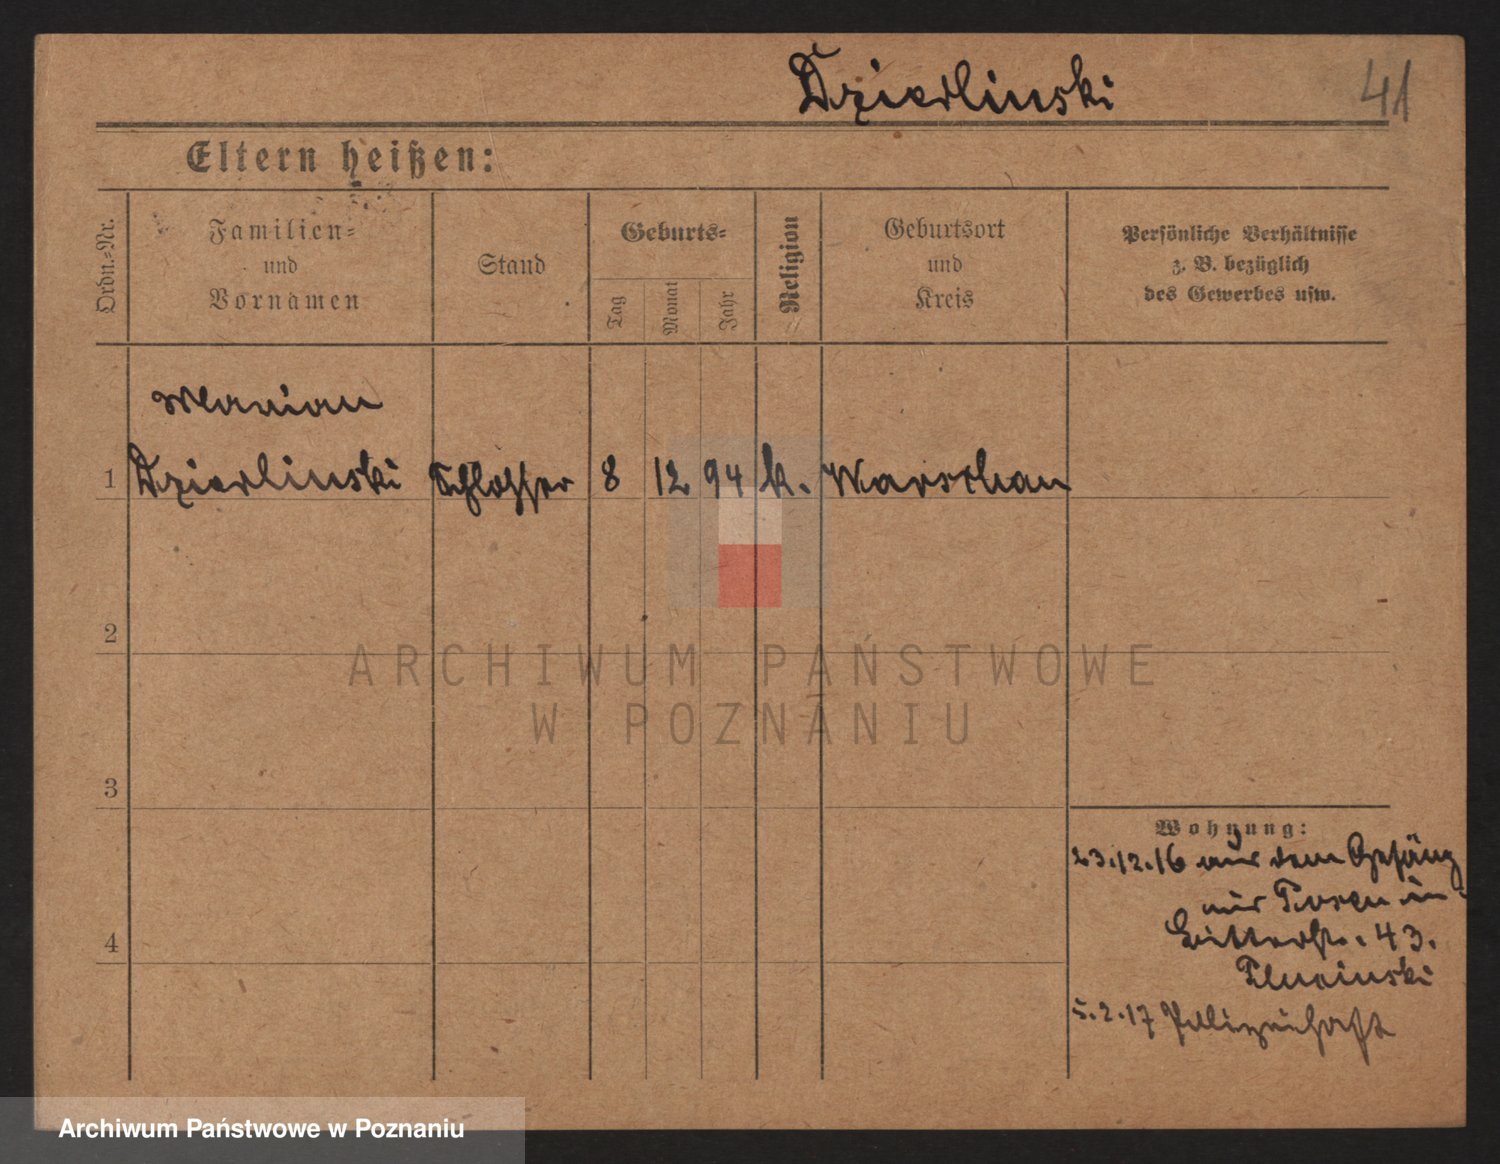 Dzierlinski
41
Eltern heißen:
Ordn.-Nr.
Familien-
und
Vornamen
Stand
Geburts-
Tag
Monat
Jahr
Religion
Geburtsort
und
Kreis
Persönliche Verhältnisse
z. B. bezüglich
des Gewerbes usw.
Marian
1 Dzierlinski Schlosser 8 12 94 k. Warschau
2
3
4
Wohnung:
23.12.16 aus dem Gefäng
nis Posen in
Ritterstr. 43.
5.2.17 Polizeihaft
ARCHIWUM PAŃSTWOWE
W POZNANIU
Archiwum Państwowe w Poznaniu